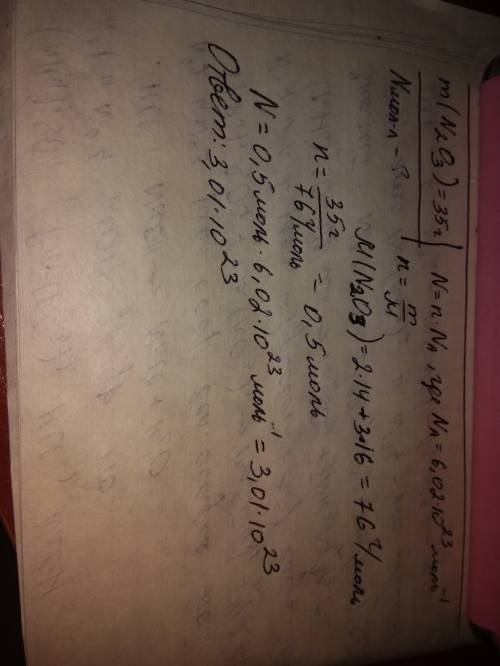 m(N₂O₃)=35г | N=n·Nₐ, где Nₐ=6,02·10²³ моль⁻¹
Nмол-л - ? | n=m/M
M(N₂O₃)=2·14+3·16=76 г/моль
n=35г/76 г/моль = 0,5 моль
N=0,5 моль·6,02·10²³ моль⁻¹=3,01·10²³
Ответ: 3,01·10²³